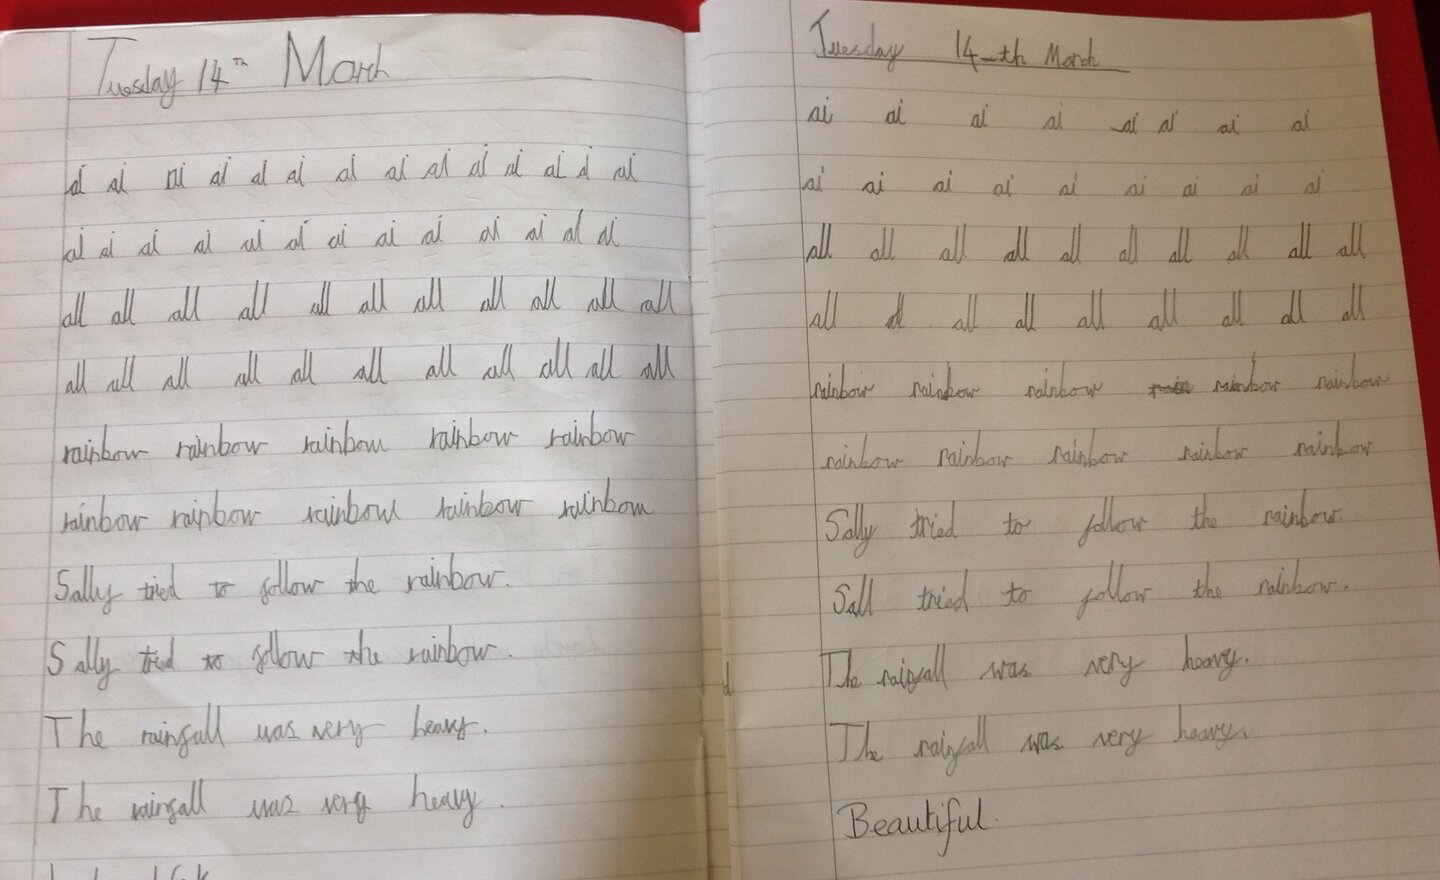 Tuesday 14Th March
ai ai ai ai ai ai ai ai ai ai ai ai ai ai
ai ai ai ai ai ai ai ai ai ai ai ai ai
all all all all all all all all all all all
all all all all all all all all all all all
rainbow rainbow rainbow rainbow rainbow
rainbow rainbow rainbow rainbow rainbow
Sally tried to follow the rainbow.
Sally tried to follow the rainbow.
The rainfall was very heavy.
The rainfall was very heavy.
Tuesday 14th March
ai ai ai ai ai ai ai ai
ai ai ai ai ai ai ai ai ai
all all all all all all all all all all
all all all all all all all all all
rainbow rainbow rainbow rain rainbow rainbow
rainbow rainbow rainbow rainbow rainbow
Sally tried to follow the rainbow.
Sall tried to follow the rainbow.
The rainfall was very heavy.
The rainfall was very heavy.
Beautiful.